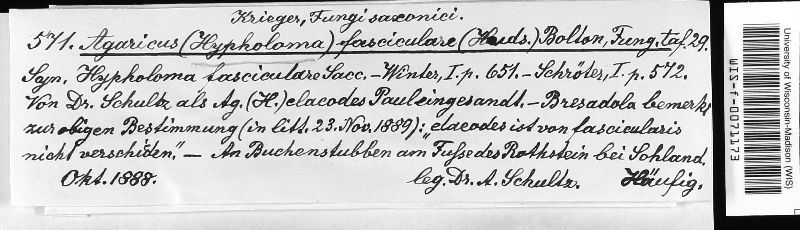 Krieger, Fungi saxonici.
571. Agaricus (Hypholoma) fasciculare (Huds.) Bolton, Fung. taf. 29.
Syn. Hypholoma fasciculare Sacc. – Winter, I. p. 651. – Schröter, I. p. 572.
Von Dr. Schultz als Ag. (H.) elaeodes Paul eingesandt. – Bresadola bemerkt
zur obigen Bestimmung (in litt. 23. Nov. 1889): „elaeodes ist von fascicularis
nicht verschiden." – An Buchenstubben am Fusse des Rothstein bei Sohland.
Okt. 1888. leg. Dr. A. Schultz. Häufig.
University of Wisconsin-Madison (WIS)
WIS-f-0071173